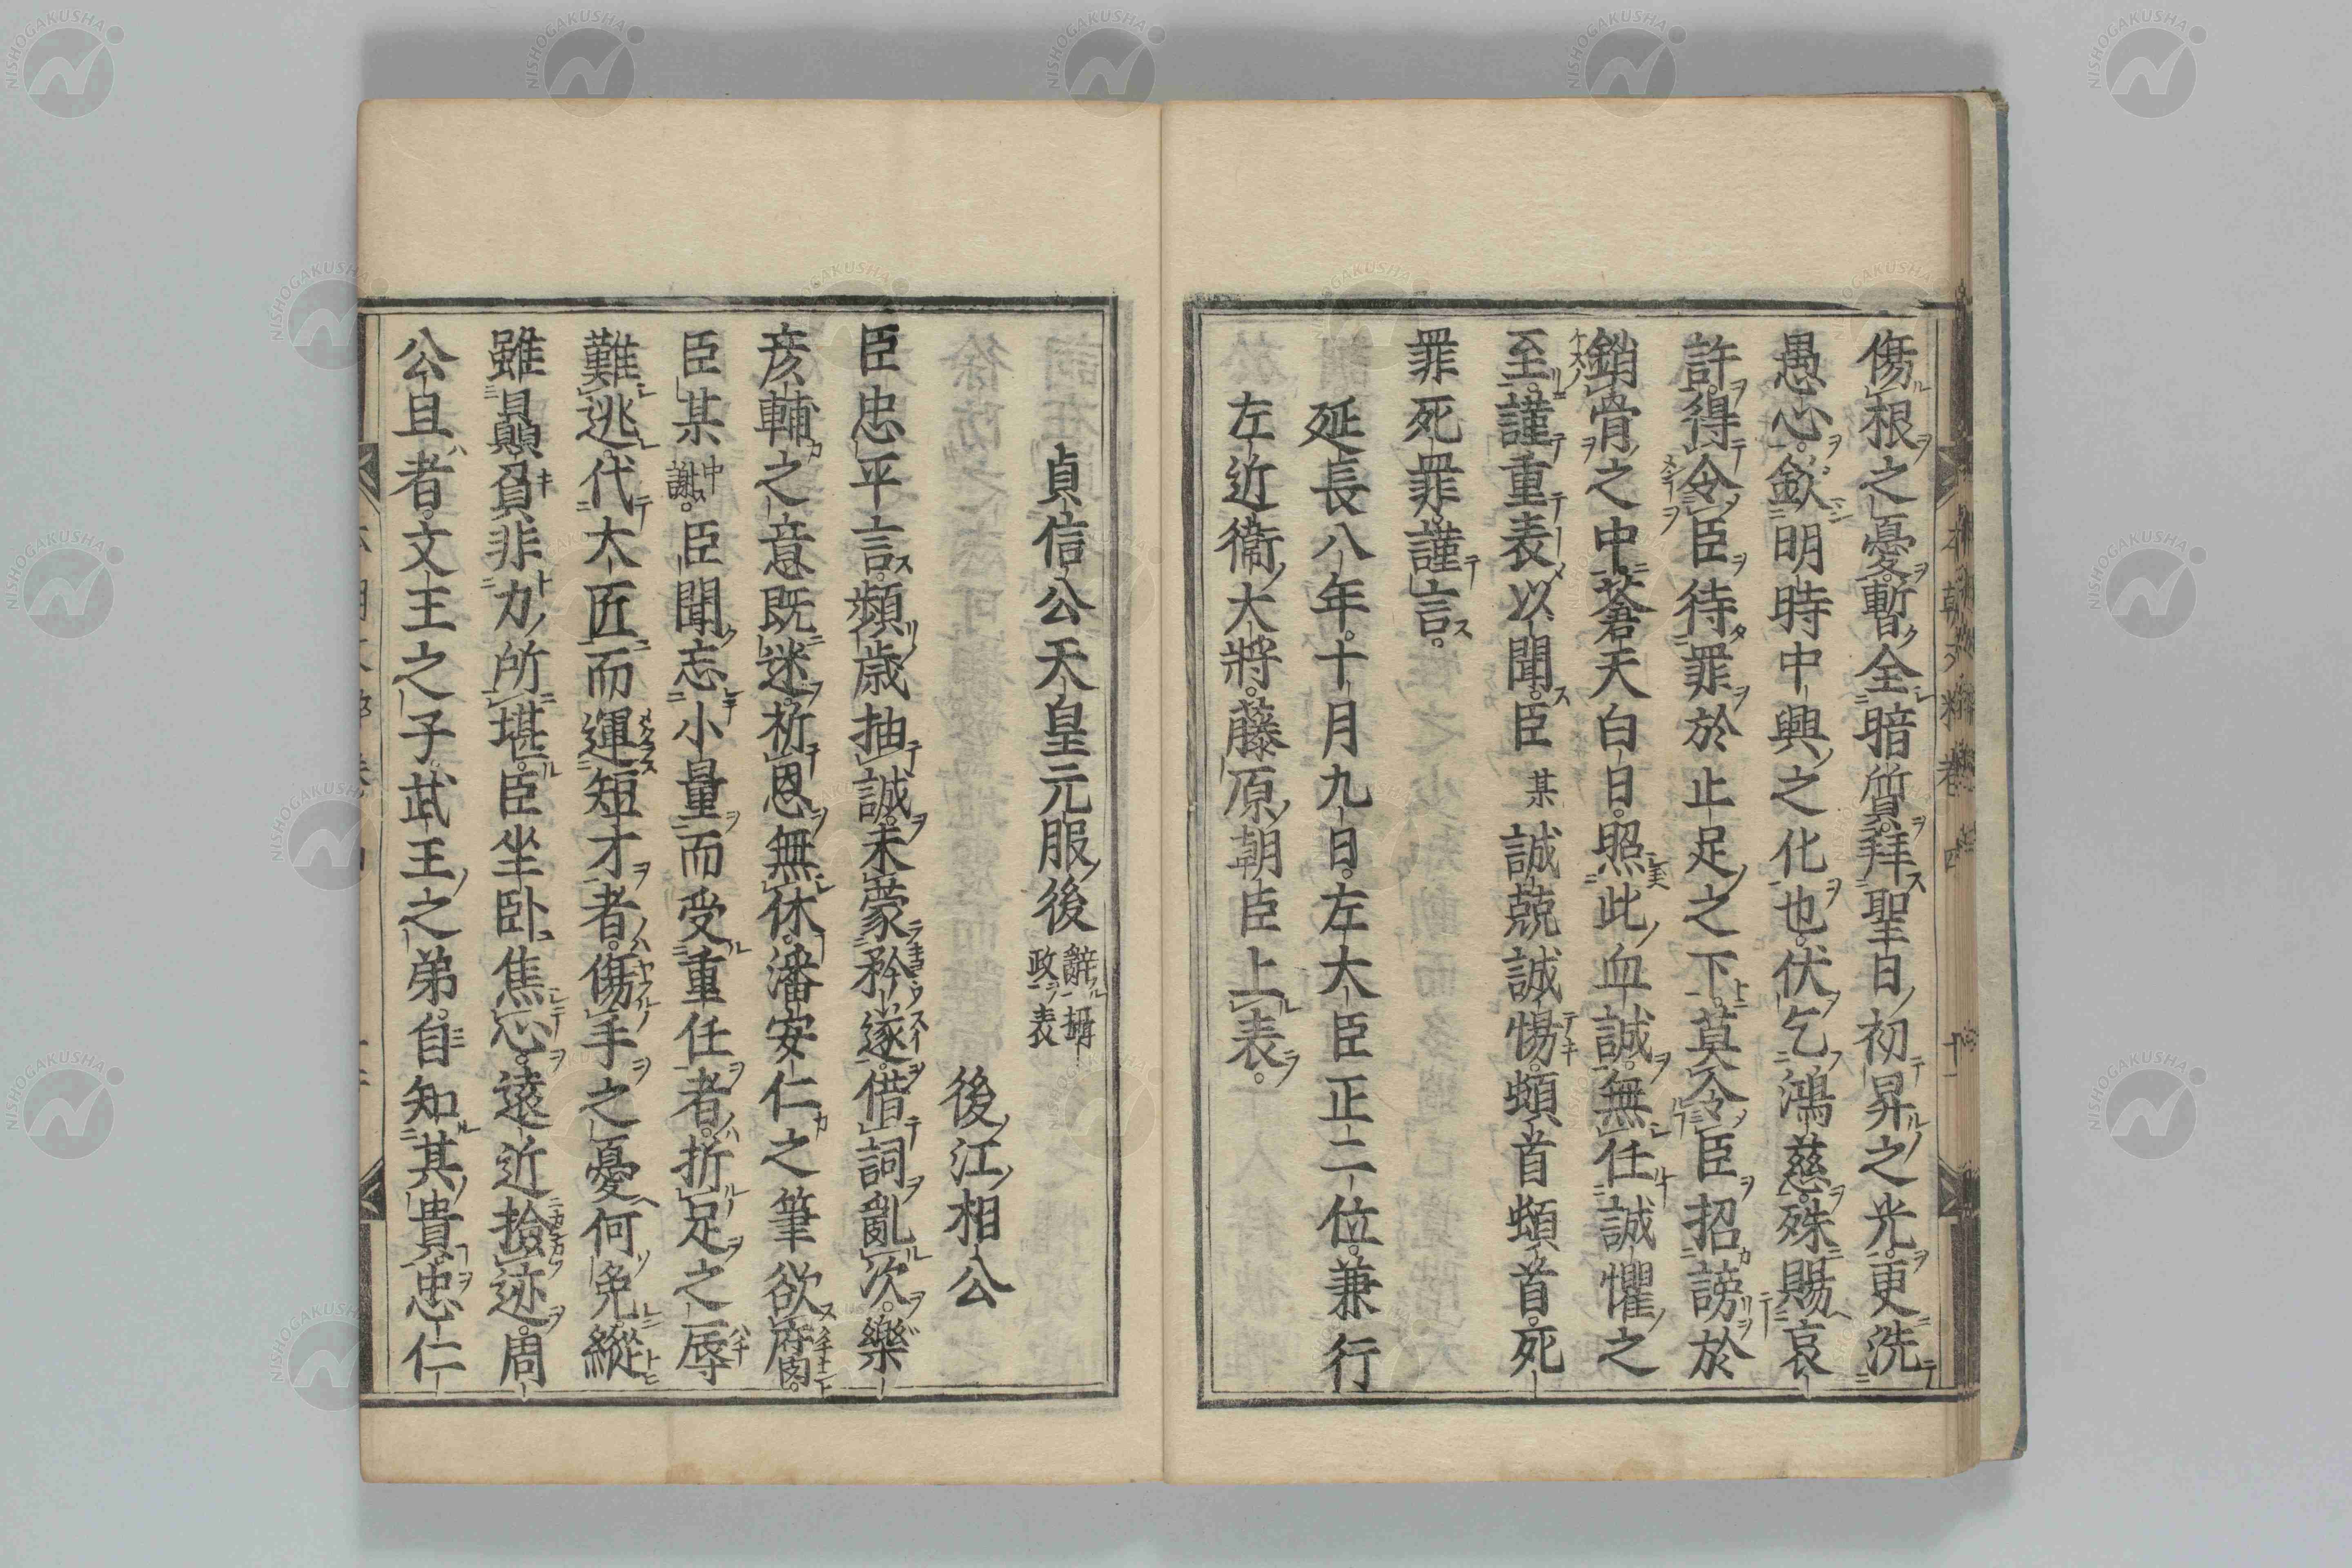 傷根之憂。暫全暗質。拜聖日初昇之光。更洗
愚心。欽明時中興之化也。伏乞鴻慈。殊賜哀
許。得令臣待罪於止足之下。莫令臣招謗於
鎖骨之中。蒼天白日。照此血誠。無任誠懼之
至。謹重表以聞。臣某誠兢誠惕。頓首頓首。死
罪死罪。謹言。
延長八年。十月九日。左大臣正二位。兼行
左近衞大將。藤原朝臣上表。
貞信公天皇元服後辭攝政表
後江相公
臣忠平言。頻歳抽誠。未蒙矜遂。借詞亂次。樂
彦輔之意既迷。祈恩無休。潘安仁之筆欲腐。
臣某中謝。臣聞志小量而受重任者。折足之辱
難逃。代大匠而運短才者。傷手之憂何免。縱
雖贔屓非力所堪。臣坐卧焦心。遠近撿迹。周
公旦者。文王之子。武王之弟。自知其貴。忠仁